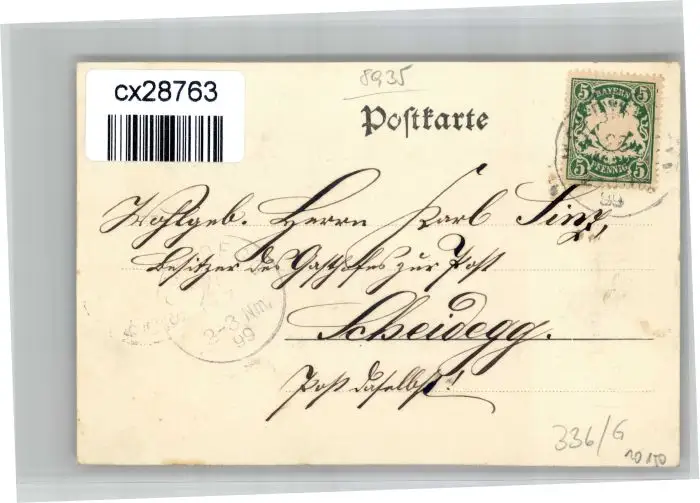 cx28763
8935
Postkarte
5 BAYERN 5
5 PFENNIG 5
Wohlgeb. Herrn Karl Sinz,
Besitzer des Gasthofes zur Post
2-3 Nm.
99
Scheidegg.
Post daselbst!
336/G